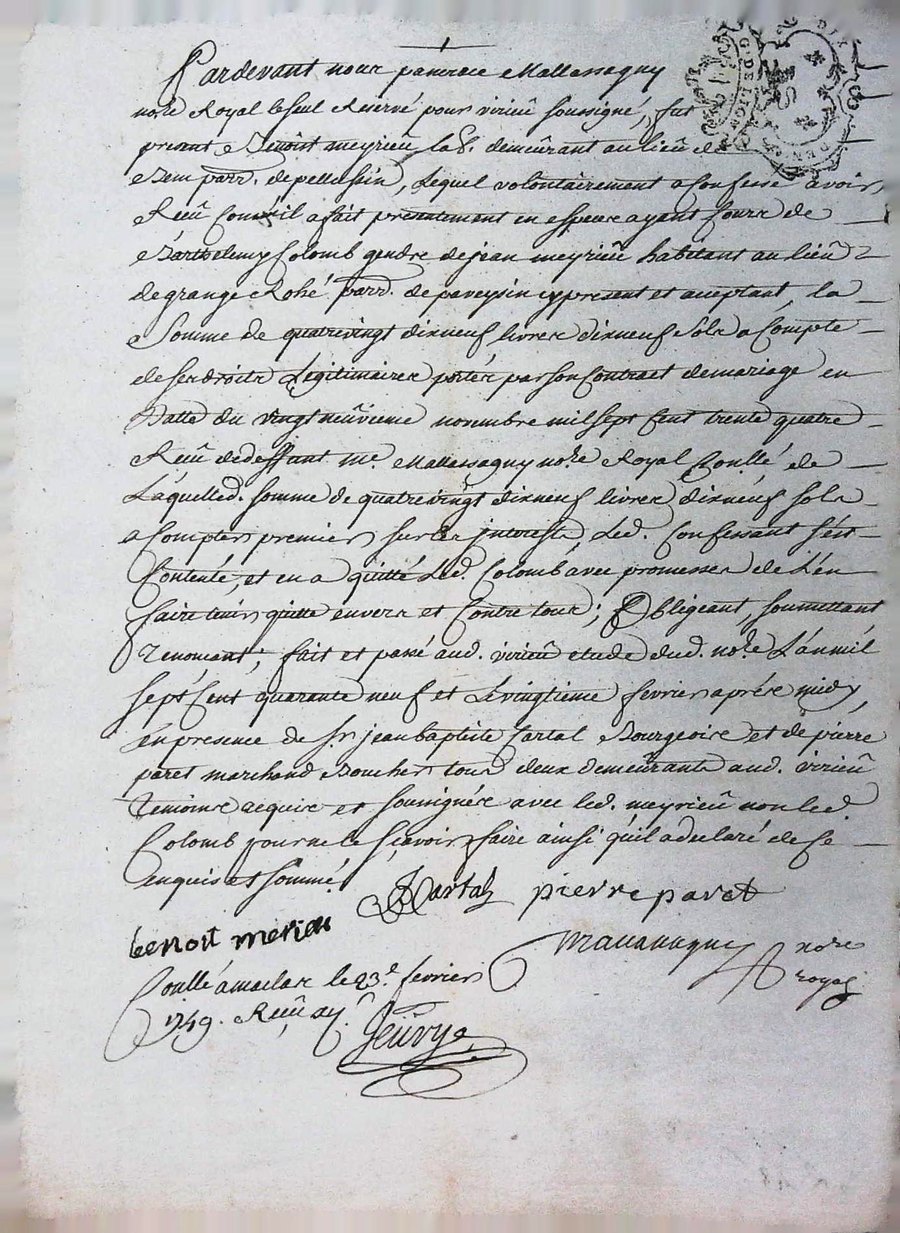 Pardevant nous pancrace Mallassagny
no.re Royal le seul Reservé pour virieû soussigné, fut
present Benoist meyrieû lab.r demeûrant au lieû de
Bem parr. de pellussin, Lequel volontairement a Confessé avoir
Reçû Comm'il a fait presentement en espece ayant Cours de
Barthelemy Colomb gendre de jean meyrieû habitant au lieû
de grange Rohé parr. de paveysin cy present et acceptant, la
Somme de quatrevingt dixneuf livres dixneuf Sols a Compte
de ses droits Legitimaires portés par son Contract de mariage en
Datte du vingt neûvieme novembre mil sept Cent trente quatre
Reçû dedeffunt me. Mallassagny no.re Royal Conllé de
Laquelled. somme de quatrevingt dixneuf livres dixneuf sols
a Compter premier sur les interests, Led. Confessant s'est
Contenté, et en a quitté Led. Colomb avec promesses de L'en
faire tenir quitte envers et Contre tous; Obligeant, soumettant
Renonçant; fait et passé aud. virieû etude dud. no.re L'an mil
sept Cent quarante neuf et Le vingtieme fevrier aprés midy,
en presence de S.r jean baptiste Cartal Bourgeois et de pierre
paret marchand Boucher tous deux demeûrants aud. virieû
temoins requis et soussignés avec led. meyrieû non led.
Colomb pour ne le sçavoir faire ainsi qu'il a declaré de ce
enquis et sommé
Cartal pierre paret
benoit merieu
Mallassagny no.re
royal
Conllé a maclas le 23.e fevrier
1749. Reçû
Seûvye